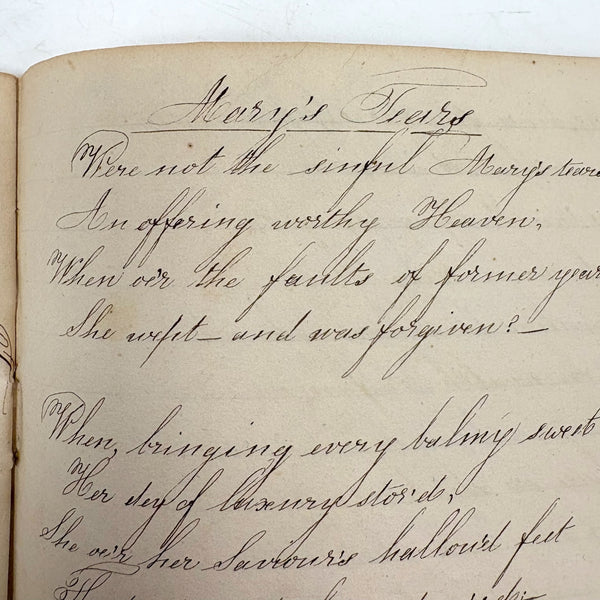 Mary's Tears
Were not the sinful Mary's tears
An offering worthy Heaven,
When oe'r the faults of former year
She wept — and was forgiven? —
When, bringing every balmy sweet
Her dey of luxury stor'd,
She oe'r her Saviour's hallow'd feet